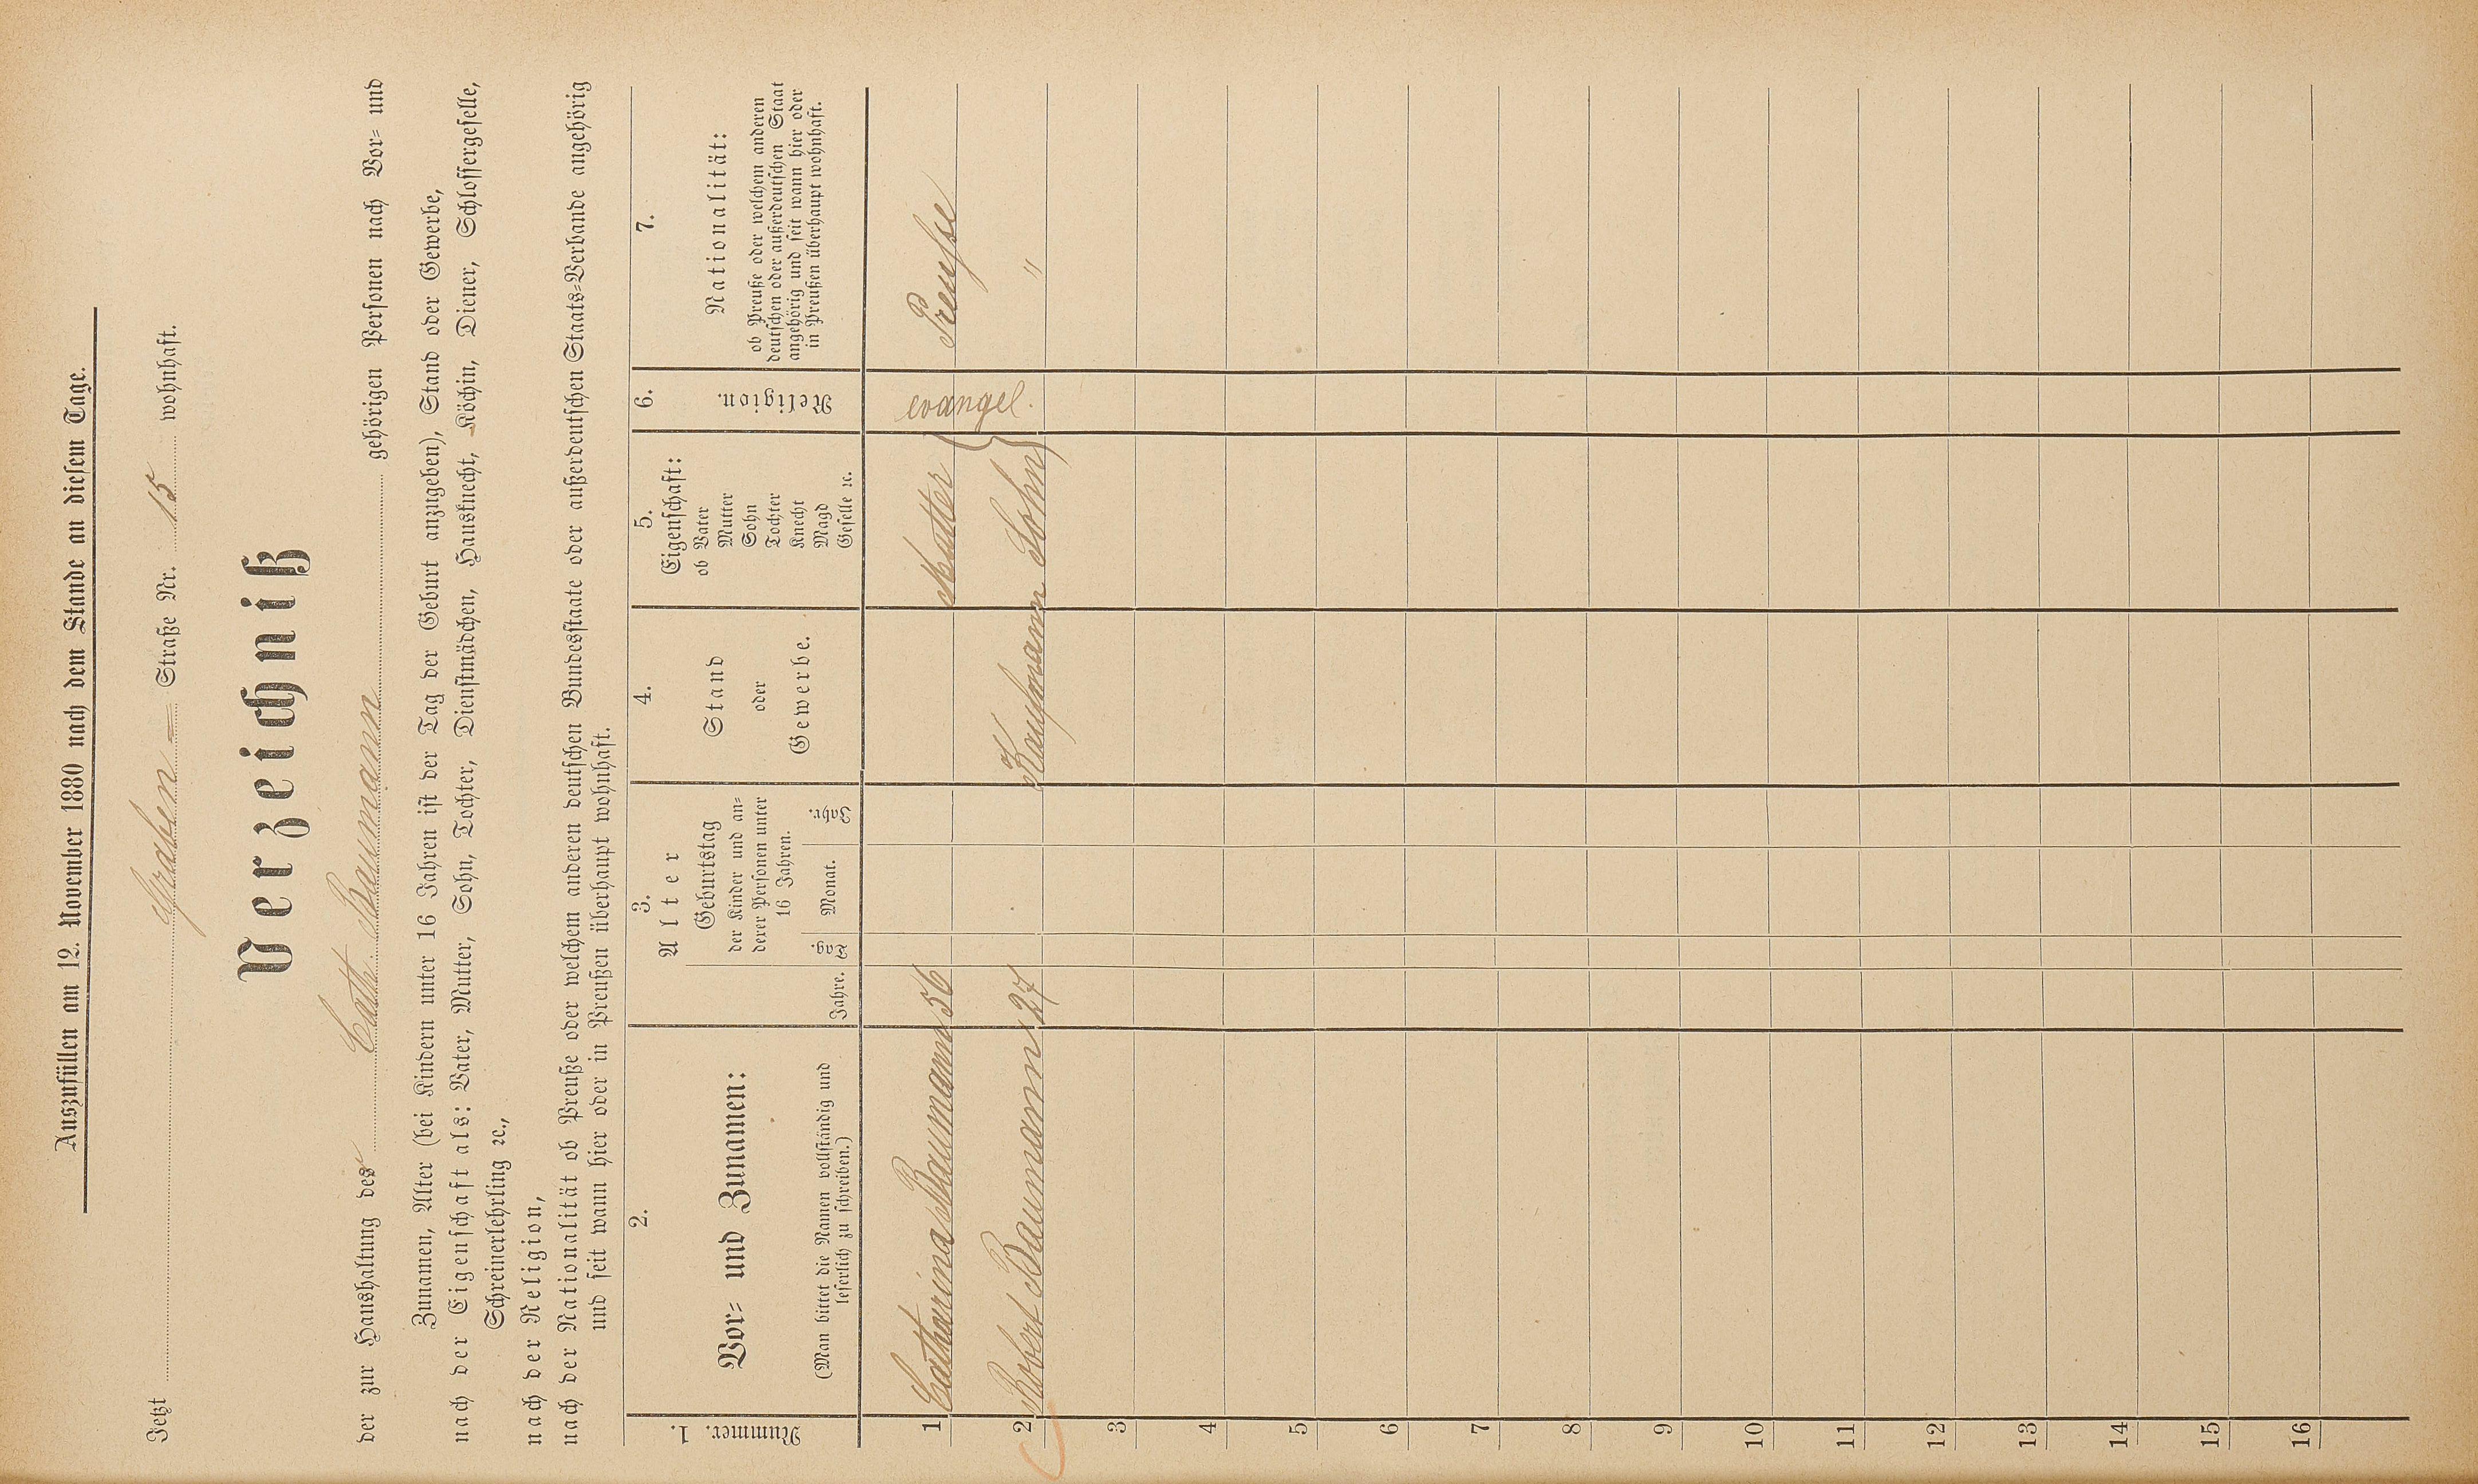 Auszufüllen am 12. November 1880 nach dem Stande an diesem Tage.
Jetzt Graben = Straße Nr. 15 wohnhaft.
Verzeichniß
der zur Haushaltung der Cath. Baumann gehörigen Personen nach Vor= und
Zunamen, Alter (bei Kindern unter 16 Jahren ist der Tag der Geburt anzugeben), Stand oder Gewerbe,
nach der Eigenschaft als: Vater, Mutter, Sohn, Tochter, Dienstmädchen, Hausknecht, Köchin, Diener, Schlossergeselle,
Schreinerlehrling ꝛc.,
nach der Religion,
nach der Nationalität ob Preuße oder welchem anderen deutschen Bundesstaate oder außerdeutschen Staats=Verbande angehörig
und seit wann hier oder in Preußen überhaupt wohnhaft.
1. Nummer.
2.
Vor= und Zunamen:
(Man bittet die Namen vollständig und
leserlich zu schreiben.)
3.
Alter
Jahre.
Geburtstag
der Kinder und an=
derer Personen unter
16 Jahren.
Tag. Monat. Jahr.
4.
Stand
oder
Gewerbe.
5.
Eigenschaft:
ob Vater
Mutter
Sohn
Tochter
Knecht
Magd
Geselle ꝛc.
6.
Religion.
7.
Nationalität:
ob Preuße oder welchem anderen
deutschen oder außerdeutschen Staat
angehörig und seit wann hier oder
in Preußen überhaupt wohnhaft.
1 Catharina Baumann 56 Mutter evangel. Preusse
2 Robert Baumann 27 Kaufmann Sohn "
3
4
5
6
7
8
9
10
11
12
13
14
15
16